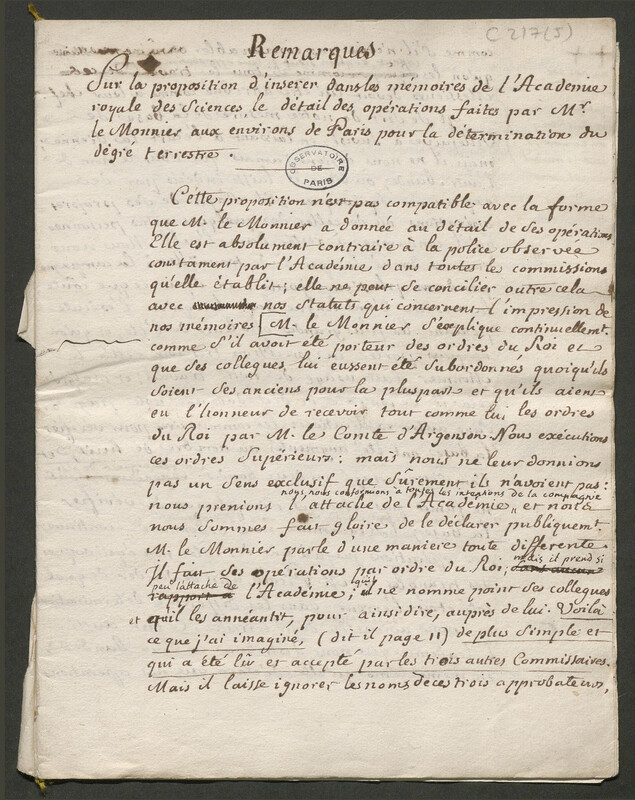 C 217(5)
Remarques
Sur la proposition d'inserer dans les mémoires de l'Academie
royale des Sciences le détail des opérations faites par Mr.
le Monnier aux environs de Paris pour la détermination du
dégré terrestre.
OBSERVATOIRE
DE
PARIS
Cette proposition n'est pas compatible avec la forme
que M. le Monnier a donnée au détail de ses opérations
Elle est absolument contraire à la police observée
constament par l'Académie dans toutes les commissions
qu'elle établit; elle ne peut se concilier outre cela
avec nos Statuts qui concernent l'impression de
nos mémoires [M. le Monnier s'éxplique continuellemt.
comme s'il avoit été porteur des ordres du Roi et
que ses collegues lui eussent été subordonnés quoiqu'ils
soient ses anciens pour la pluspart et qu'ils aient
eu l'honneur de recevoir tout comme lui les ordres
du Roi par M. le Comte d'Argenson. Nous exécutions
ces ordres Supérieurs: mais nous ne leur donnions
pas un Sens exclusif que sûrement ils n'avoient pas:
nous nous conformions à toutes les intentions de la compagnie
nous prenions l'attache de l'Académie, et nous
nous sommes fait gloire de le déclarer publiquemt.
M. le Monnier parle d'une maniere toute differente.
mais il prend si
Il fait ses opérations par ordre du Roi, sans aucun
peu l'attache de
rapport à l'Académie; qu'il ne nomme point ses collegues
et qu'il les annéantit, pour ainsi dire, auprès de lui. Voilà
ce que j'ai imaginé, (dit il page 11) de plus simple et
qui a été lû et accepté par les trois autres Commissaires.
Mais il laisse ignorer les noms de ces trois approbateurs,